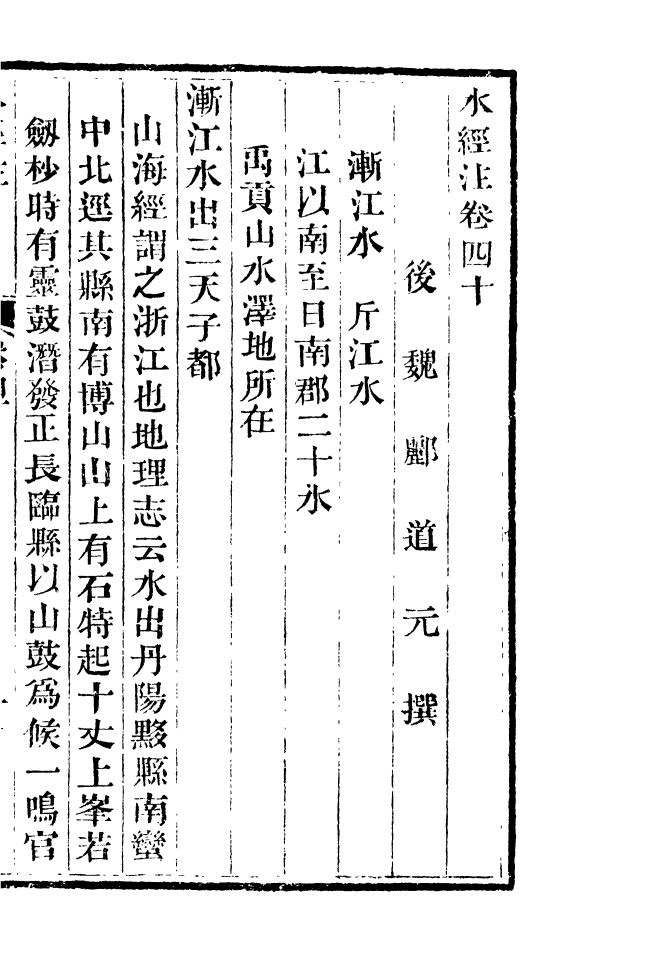 水經注卷四十
後魏酈道元撰
漸江水　斤江水
江以南至日南郡二十水
禹貢山水澤地所在
漸江水出三天子都
山海經謂之浙江也地理志云水出丹陽黟縣南蠻
中北逕其縣南有博山山上有石特起十丈上峯若
劒杪時有靈鼓潛發正長臨縣以山鼓爲候一鳴官